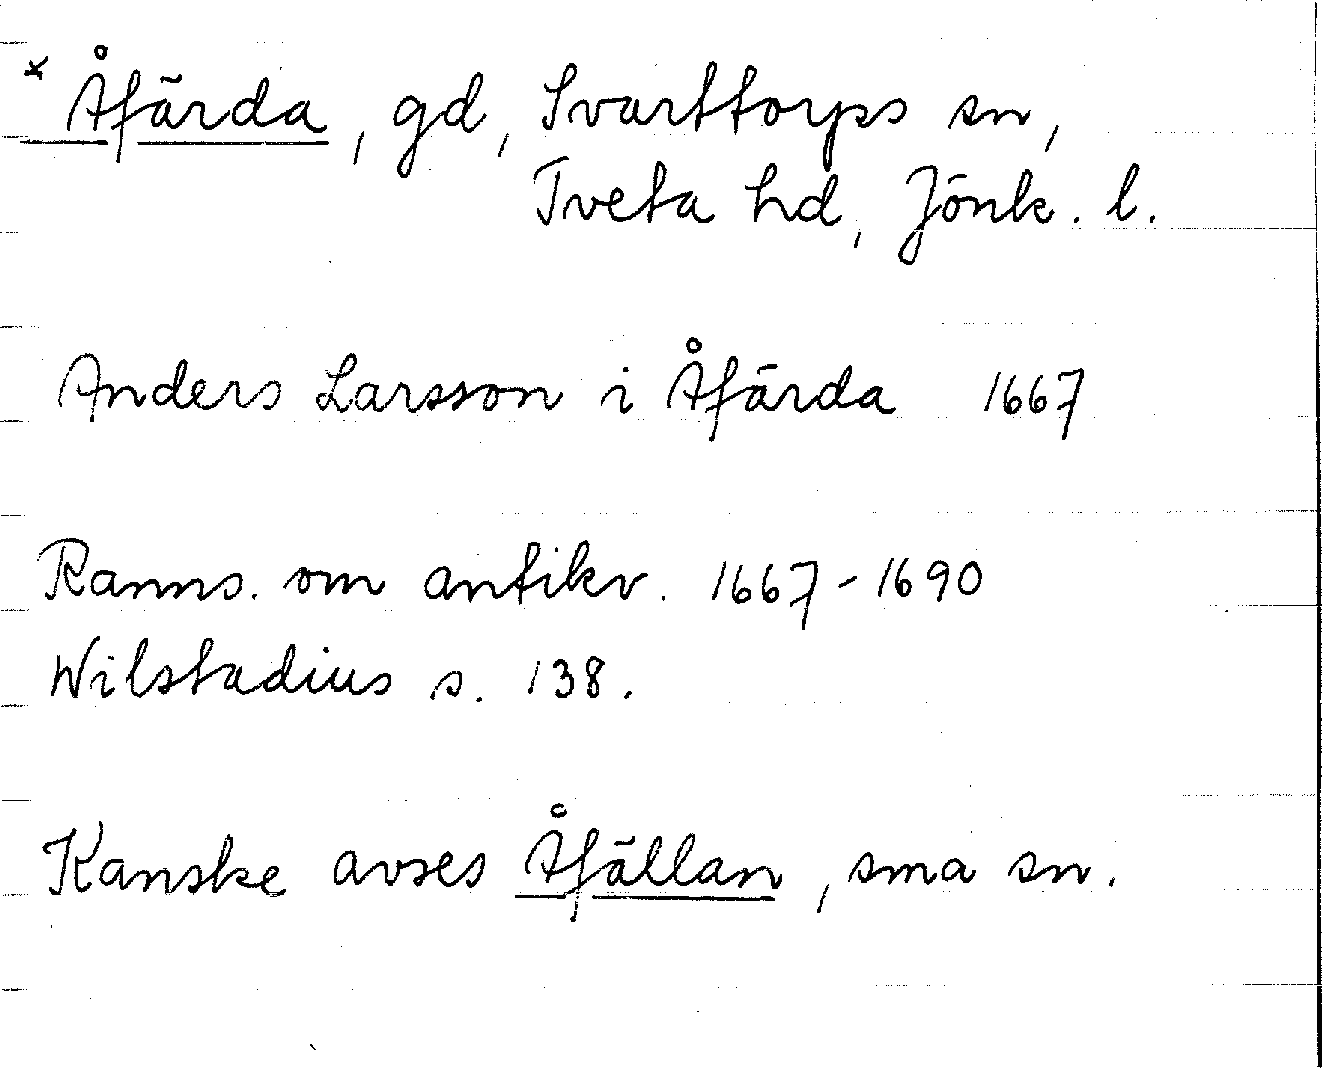 × Åfärda, gd, Svarttorps sn,
Tveta hd, Jönk. l.
Anders Larsson i Åfärda 1667
Ranns. om antikv. 1667-1690
Wilstadius s. 138.
Kanske avses Åfällan, sma sn.